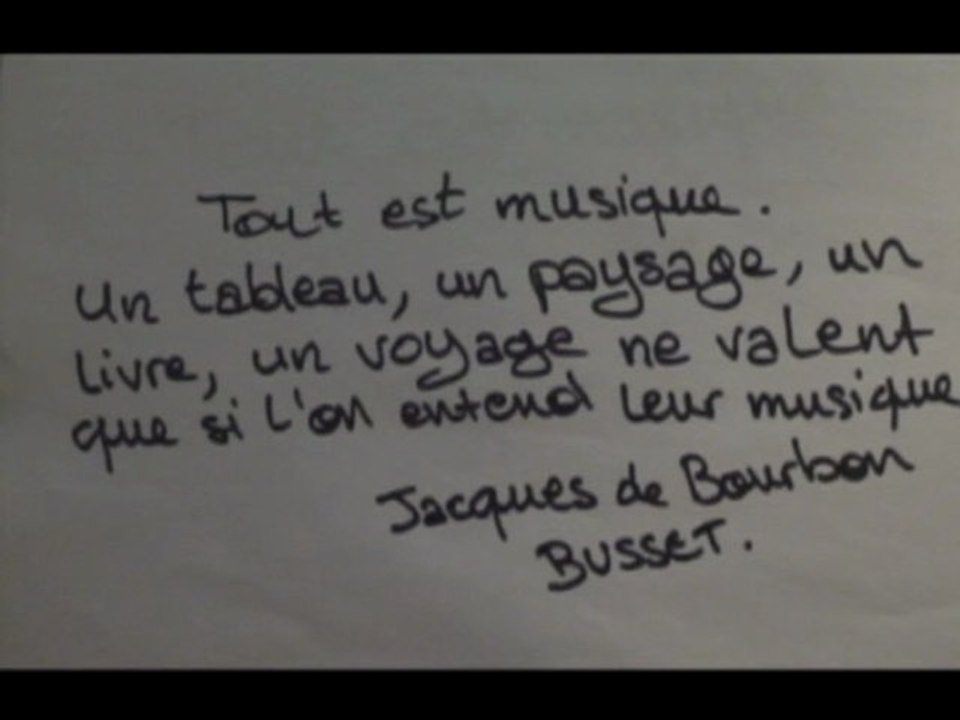 Tout est musique.
Un tableau, un paysage, un
livre, un voyage ne valent
que si l'on entend leur musique
Jacques de Bourbon
BUSSET.